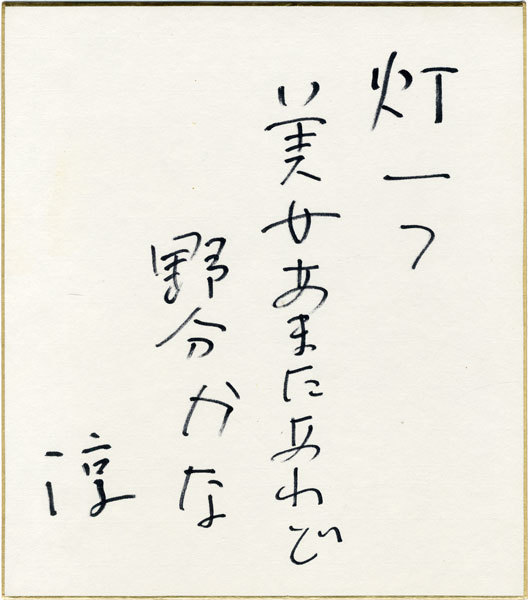 灯一つ
美女あまたあれど
野分かな
淳